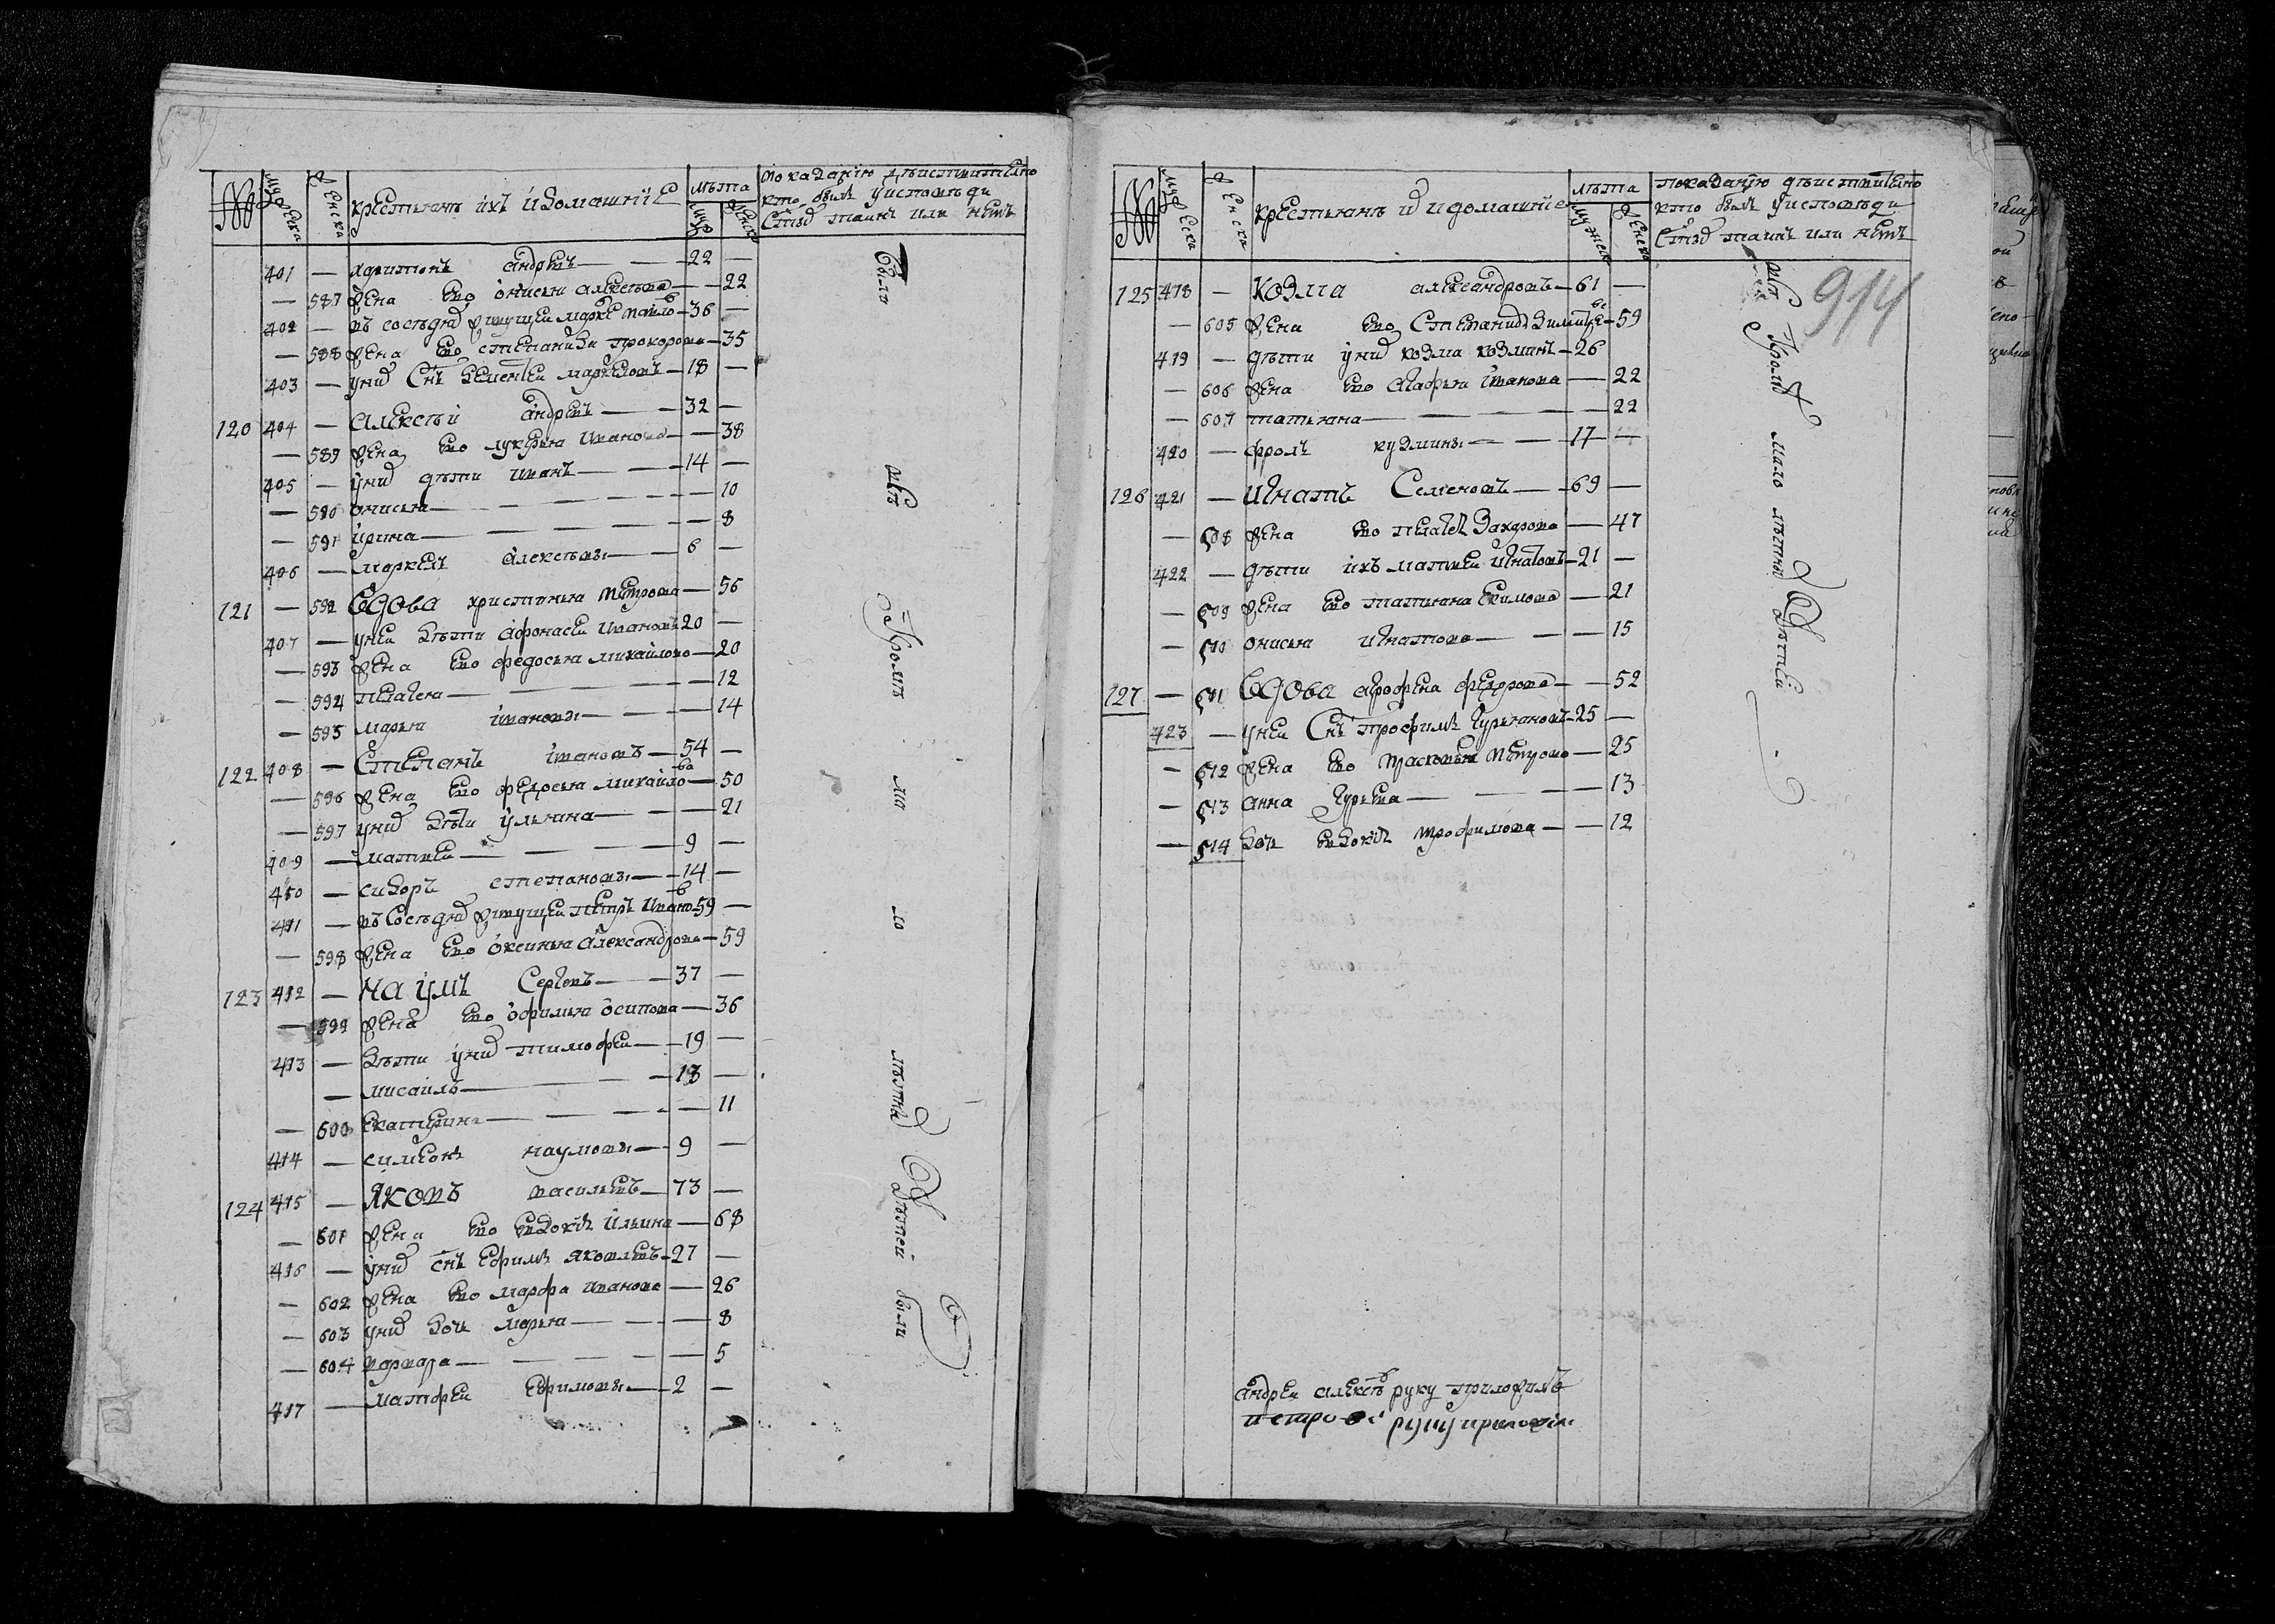 № мужеска женска крестьянъ ихъ и домашние лѣта муж женск показанию дѣиствително
кто былъ уисповѣди
стыхъ таинъ или нетъ
401 — харитонъ андреевъ — 22 —
— 587 жена ево онисья алексеева — 22
402 — въ соседяхъ живущеи маркел павло в 36 —
— 588 жена ево степанида прохорова — 35
403 — унихъ снъ дементеи маркеловъ — 18 —
120 404 — алексеи андреевъ — 32 —
— 589 жена ево лукерья иванова — 38
405 — унихъ дѣти иванъ — 14 —
— 590 онисья — 10
— 591 ирина — 8
406 — маркелъ алексеевы — 6 —
121 — 592 вдова христинья петрова — 56
407 — унеи дѣти афонасеи ивановъ 20 —
— 593 жена ево федосья михаилова — 20
— 594 пелагея — 12
— 595 марья ивановы — 14
122 408 — степанъ ивановъ — 54 —
— 596 жена ево федосья михаило ва — 50
— 597 унихъ дѣти ульяна — 21
409 — матвеи — 9 —
410 — сидоръ степановы — 14 —
411 — въ соседяхъ живущеи петръ ивано в 59 —
— 598 жена ево оксинья александрова — 59
123 412 — наумъ сергеевъ — 37 —
— 599 жена ево офимья осипова — 36
413 — дѣти унихъ тимофеи — 19 —
— мисаилъ — 18 —
— 600 екатерина — 11
414 — симеонъ наумовы — 9 —
124 415 — яковъ васильевъ — 73 —
— 601 жена ево евдокия ильина — 68
416 — унихъ снъ ефимъ яковлевъ — 27 —
— 602 жена ево марфа иванова — 26
— 603 унихъ дочь марья — 8
— 604 варвара — 5
417 — матфеи ефимовы — 2 —
были все кромѣ мало лѣтныхъ дѣтей были
№ мужеска женска крестьянъ и их домашние лѣта мужеск женска показанию дѣиствително
кто былъ уисповѣди
стыхъ таинъ или нетъ
914
125 418 — козма александровъ — 61 —
— 605 жена ево степанида
— 59
419 — дѣти унихъ козма козминъ — 26
— 606 жена ево агафья иванова — 22
— 607 татьяна — 22
420 — фролъ кузмины — 17 —
126 421 — игнатъ семеновъ — 69 —
— 508 жена ево пелагея захарова — 47
422 — дѣти ихъ матвеи игнатовъ — 21 —
— 509 жена ево татьяна екимова — 21
— 510 онисья игнатова — 15
127 — 511 вдова агрофена федорова — 52
423 — унеи снъ трофимъ гурьяновъ — 25 —
— 512 жена ево прасковья петрова — 25
— 513 анна гурьева — 13
— 514 дочь евдокия трофимова — 12
все кромѣ мало лѣтныхъ дѣтей
андреи алексеевъ руку приложилъ
петровъ руку приложилъ